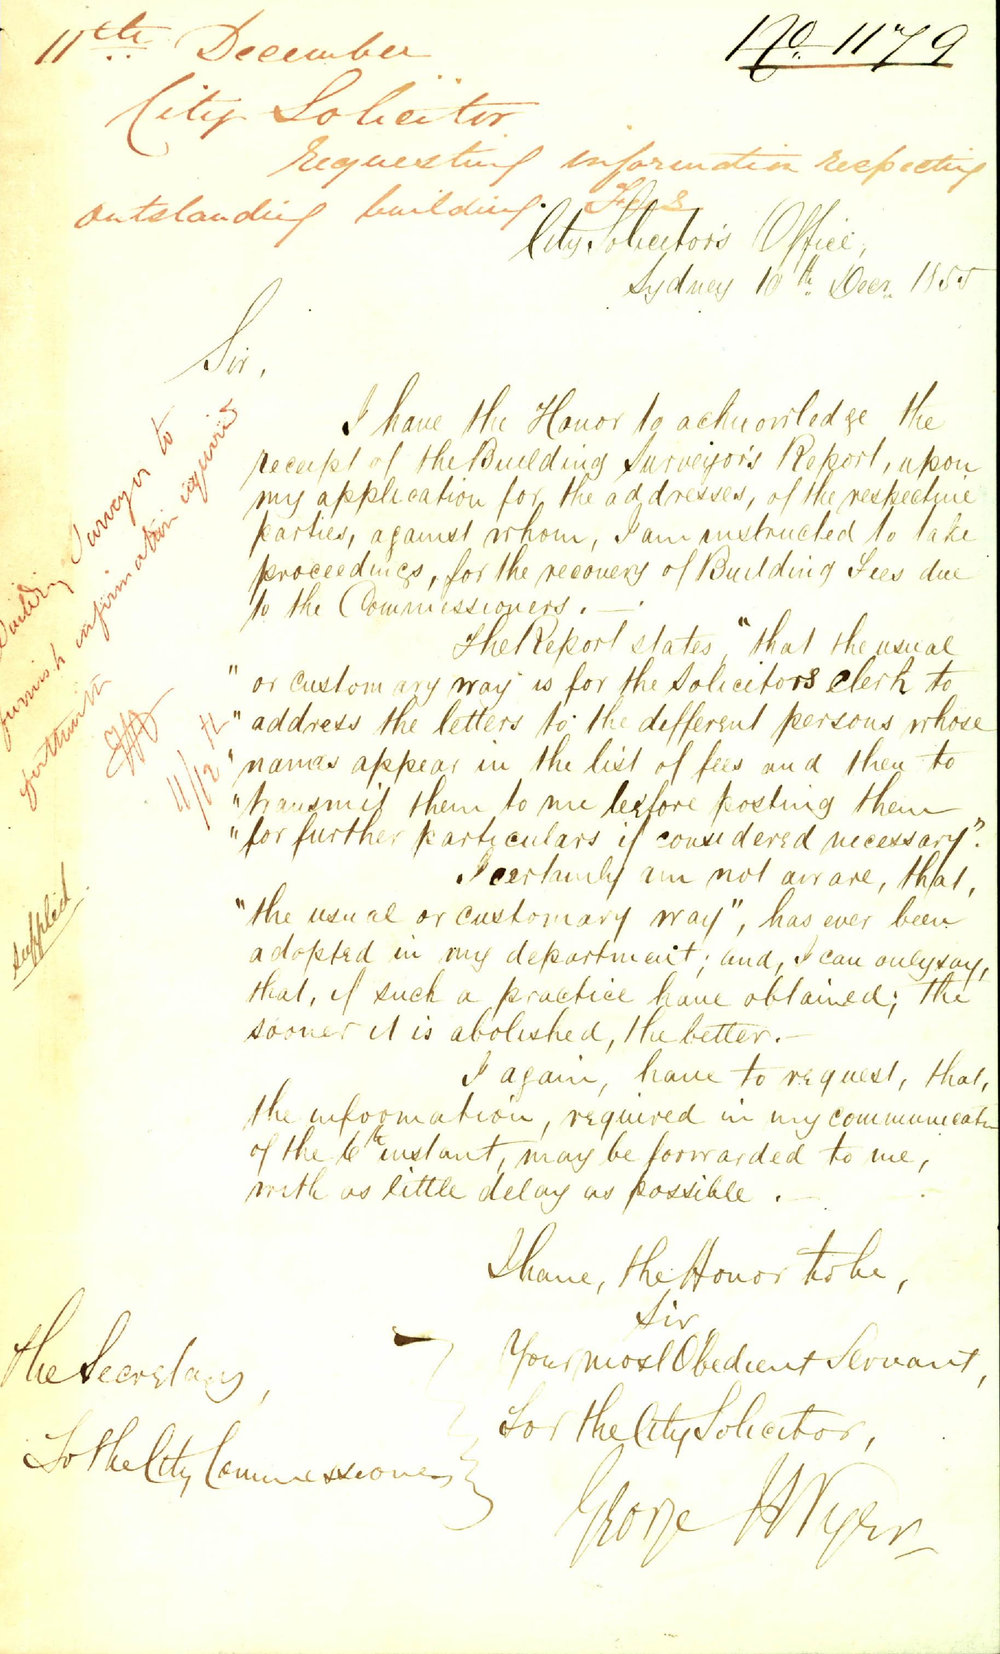 11th December
No. 1179
City Solicitor
Requesting information respecting
outstanding building Fees
City Solicitor's Office,
Sydney 10th Decr. 1855
Sir,
I have the Honor to acknowledge the
receipt of the Building Surveyor's Report, upon
my application for, the addresses, of the respective
parties, against whom, I am instructed to take
proceedings, for the recovery of Building Fees due
to the Commissioners. —
The Report states, "that the usual
" or customary way is for the Solicitors clerk to
" address the letters to the different persons whose
" names appear in the list of fees and then to
" transmit them to me before posting them
" for further particulars if considered necessary".
I certainly am not aware, that,
"the usual or customary way", has ever been
adopted in my department; and, I can only say,
that, if such a practice have obtained; the
sooner it is abolished, the better. —
I again, have to request, that,
the information, required in my communication
of the 6th instant, may be forwarded to me,
with as little delay as possible. —
I have, the Honor to be,
Sir
Your most Obedient Servant,
For the City Solicitor,
George H
The Secretary,
To the City Commissioners
Building Surveyor to
furnish information required
forthwith
11/12
supplied.